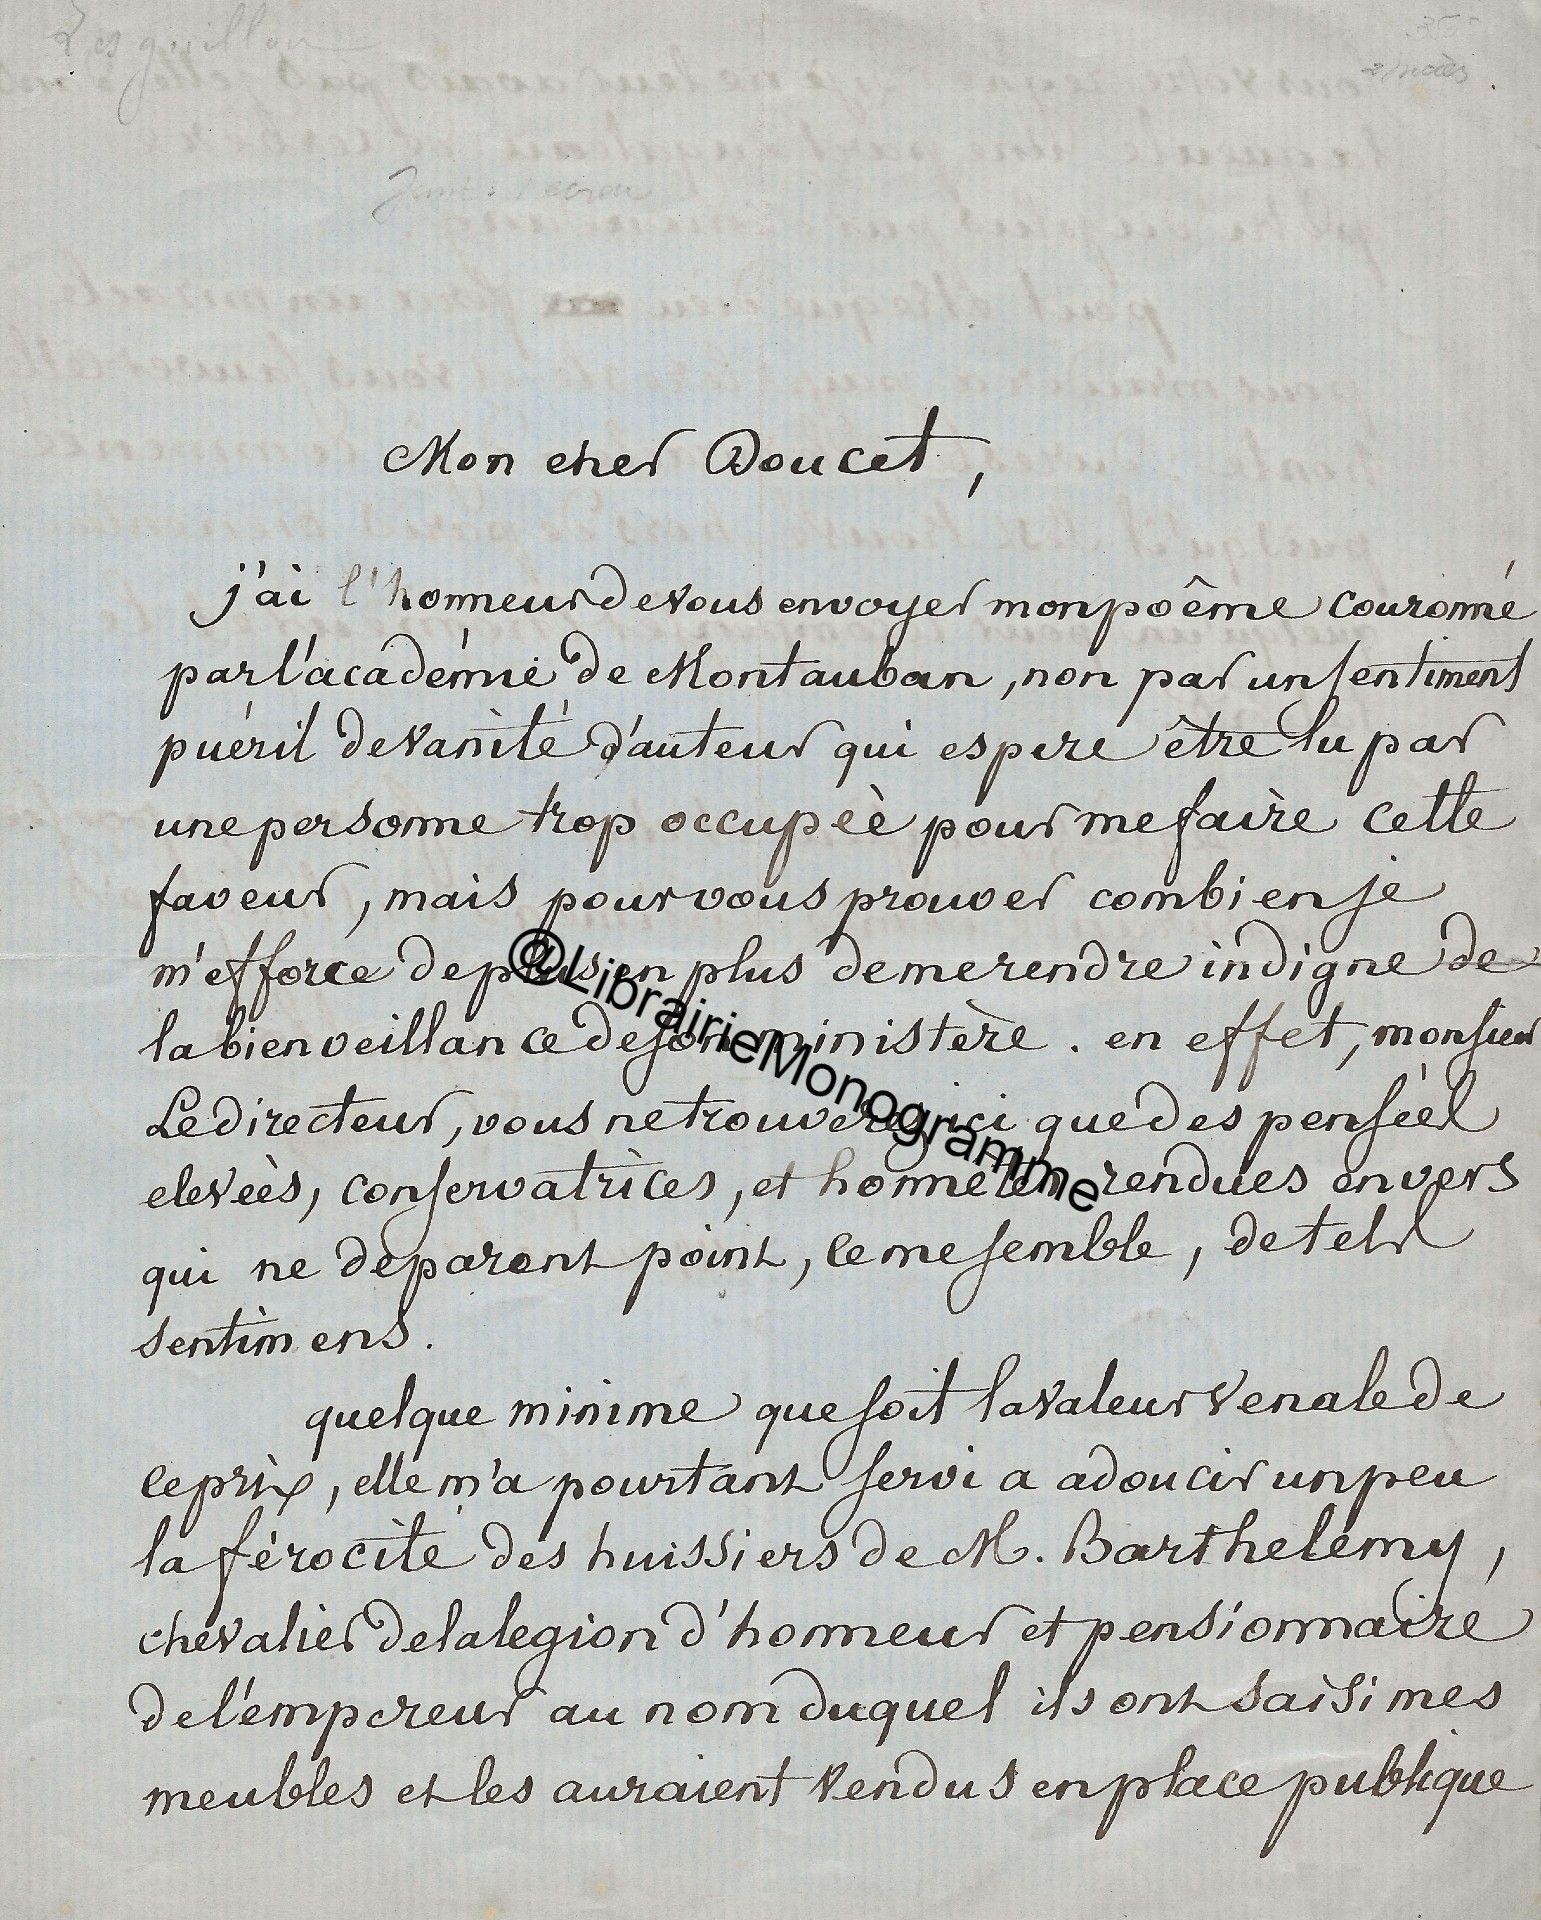 Lesguillon
Mon cher Doucet,
j'ai l'honneur de vous envoyer mon poême couronné
par l'académie de Montauban, non par un sentiment
puéril de vanité d'auteur qui espere être lu par
une personne trop occupèè pour me faire cette
faveur, mais pour vous prouver combien je
m'efforce de plus en plus de me rendre indigne de
la bienveillance de son ministère. en effet, monsieur
Le directeur, vous ne trouverez ici que des penséès
elevèès, conservatrices, et honnêtes rendues en vers
qui ne deparent point, ce me semble, de tels
sentimens.
quelque minime que soit la valeur venale de
ce prix, elle m'a pourtant servi a adoucir un peu
la férocité des huissiers de M. Barthelemy,
chevalier de la legion d'honneur et pensionnaire
de l'empereur au nom duquel ils ont saisi mes
meubles et les auraient vendus en place publique
@LibrairieMonogramme